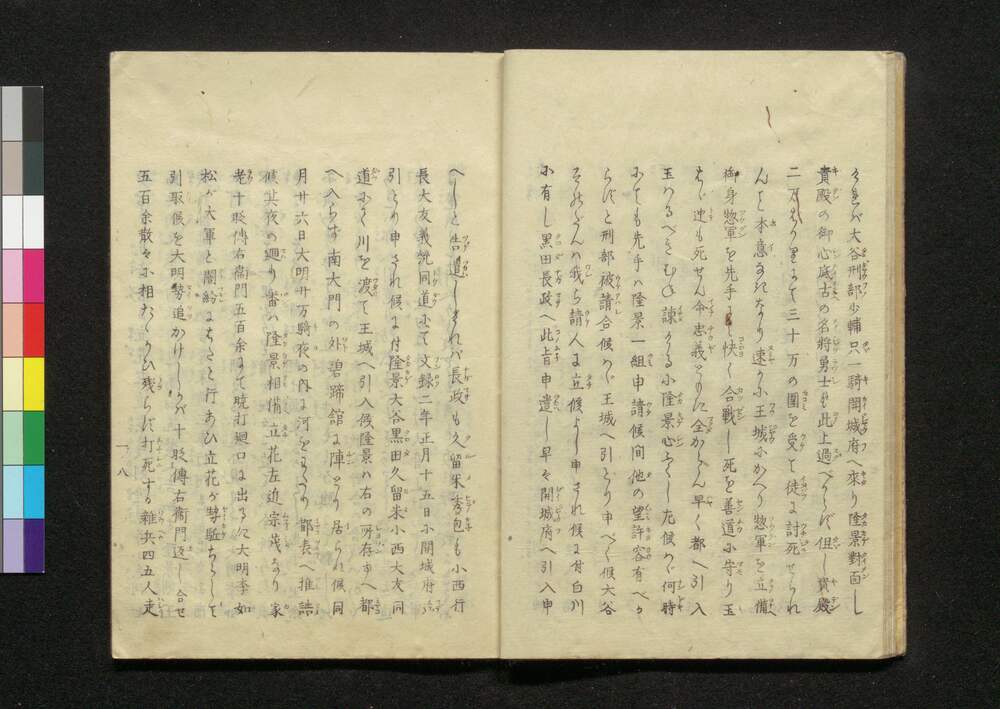 大谷刑部少輔只一騎開城府へ來り隆景對面し
貴殿の御心底古の名將勇士も此上過べからず但し貴殿
二万ばかりにて三十万の圍を受て徒に討死せられ
んと本意なきなり速かに王城にかへり惣軍を立備へ
御身惣軍を先手に快く合戰し死を善道に守り玉
はゞ迚も死せん命忠義ともに全からん早く都へ引入
玉はるべきむね諫ける小隆景心よくし左候はゞ何時
にても先手は隆景一組申請候間他の望許容有べか
らずと刑部被請合候はゞ王城へ引とり申べく候大谷
我ら請人に立候よし申され候に付白川
に有し黒田長政へ此旨申遣し早々開城府へ引入申
べしと告遣しければ長政も久留米秀包も小西行
長大友義統同道にて文録二年正月十五日小開城府
引とり申され候に付隆景大谷黒田久留米小西大友同
道にて川を渡て王城へ引入候隆景は右の所存ゆへ都
へ入らず南大門の外碧蹄館に陣とり居られ候同
月廿六日大明卄万騎夜の内に河をわたり都表へ推詰
候其夜の廻り番は隆景相備立花左近宗茂なり家
老十時傳右衞門五百余にて曉打廻口に出る処大明李如
松が大軍と闇紛にはたと行あひ立花が勢駈ちらして
引取候を大明勢追かけしかば十時傳右衞門返し合せ
五百余散々に相たゝかひ殘らず打死する雜兵四五人走
一ノ八